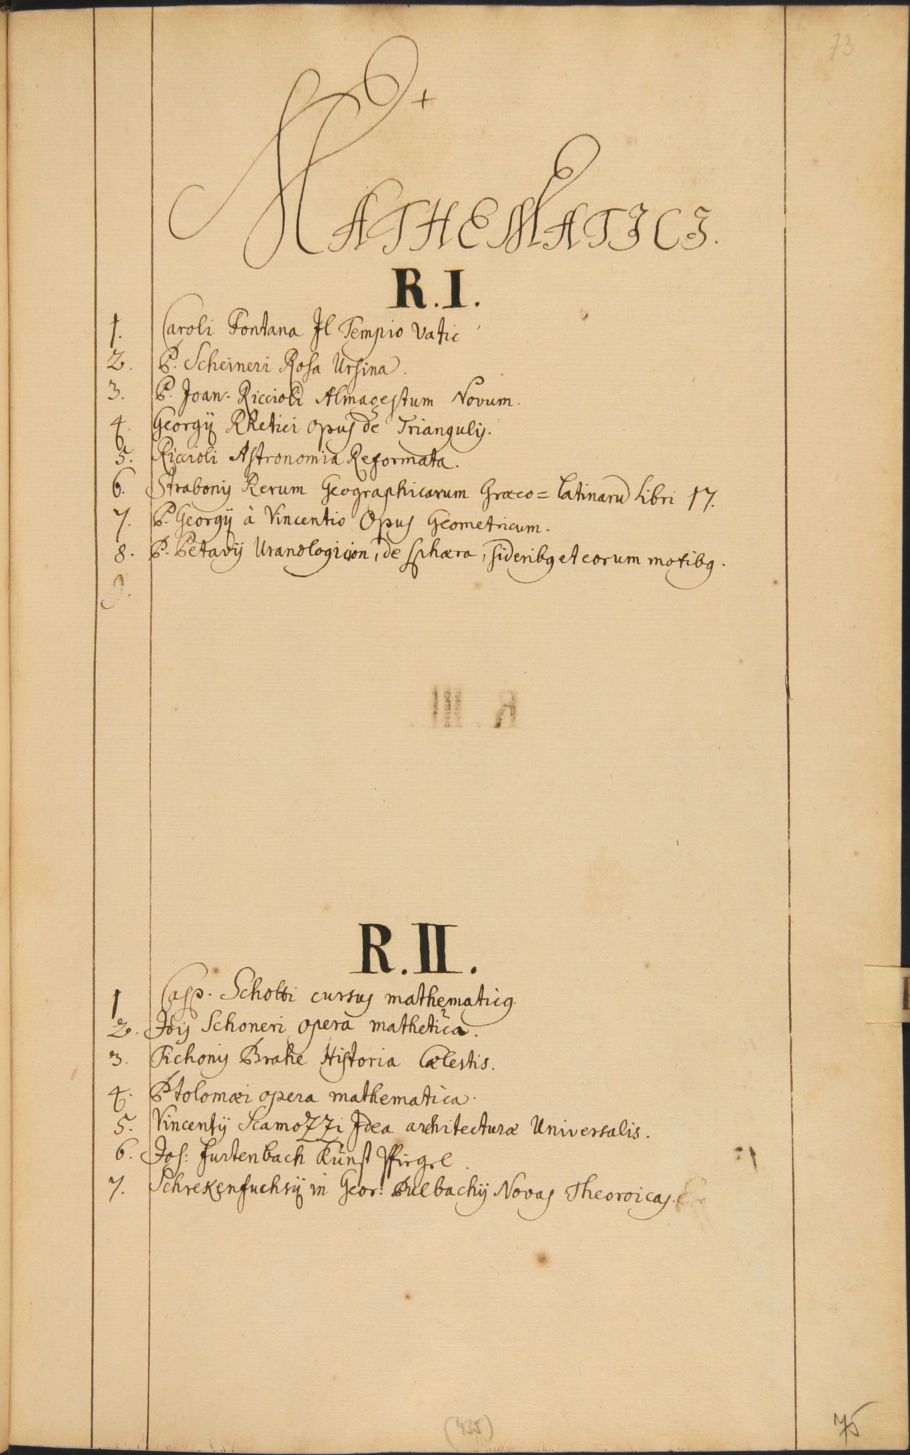 73
+
MATHEMATICI.
R.I.
1. Caroli Fontana Il Tempio Vatic
2. P. Scheineri Rosa Ursina.
3. P. Joan. Riccioli Almagestum Novum.
4. Georgij Rhetici opus de Triangulis.
5. Riccioli Astronomia Reformata.
6. Strabonis Rerum Geographicarum Græco=Latinarū Libri 17.
7. P. Georgij à Vincentio Opus Geometricum.
8. P. Petavij Uranologion, de sphæra, sideribq et eorum motibq.
9.
R. III.
R.II.
1 Casp. Schotti cursus mathematicq
2. Jōis Schoneri opera mathetica.
3. Tichonis Brahe Historia Cœlestis.
4. Ptolomæi opera mathematica.
5. Vincentij Scamozzi Idea architecturæ Universalis.
6. Jos: furtenbach Kunst
7. Schrekenfuchsij in Geor: Pulbachij Novas Theoroicas.
(435)
75